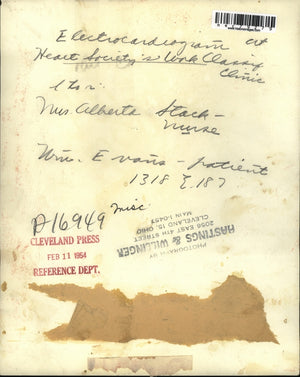 Electrocardiogram at
Heart Society's Work Classif
Clinic
l to r:
Mrs. Alberta Stock -
nurse
Wm. Evans - patient
1318 E. 187
misc
CLEVELAND PRESS
FEB 11 1954
REFERENCE DEPT.
PHOTOGRAPH BY
HASTINGS & WILLINGER
2056 EAST 4TH STREET
CLEVELAND 15, OHIO
MAIN 1-0457